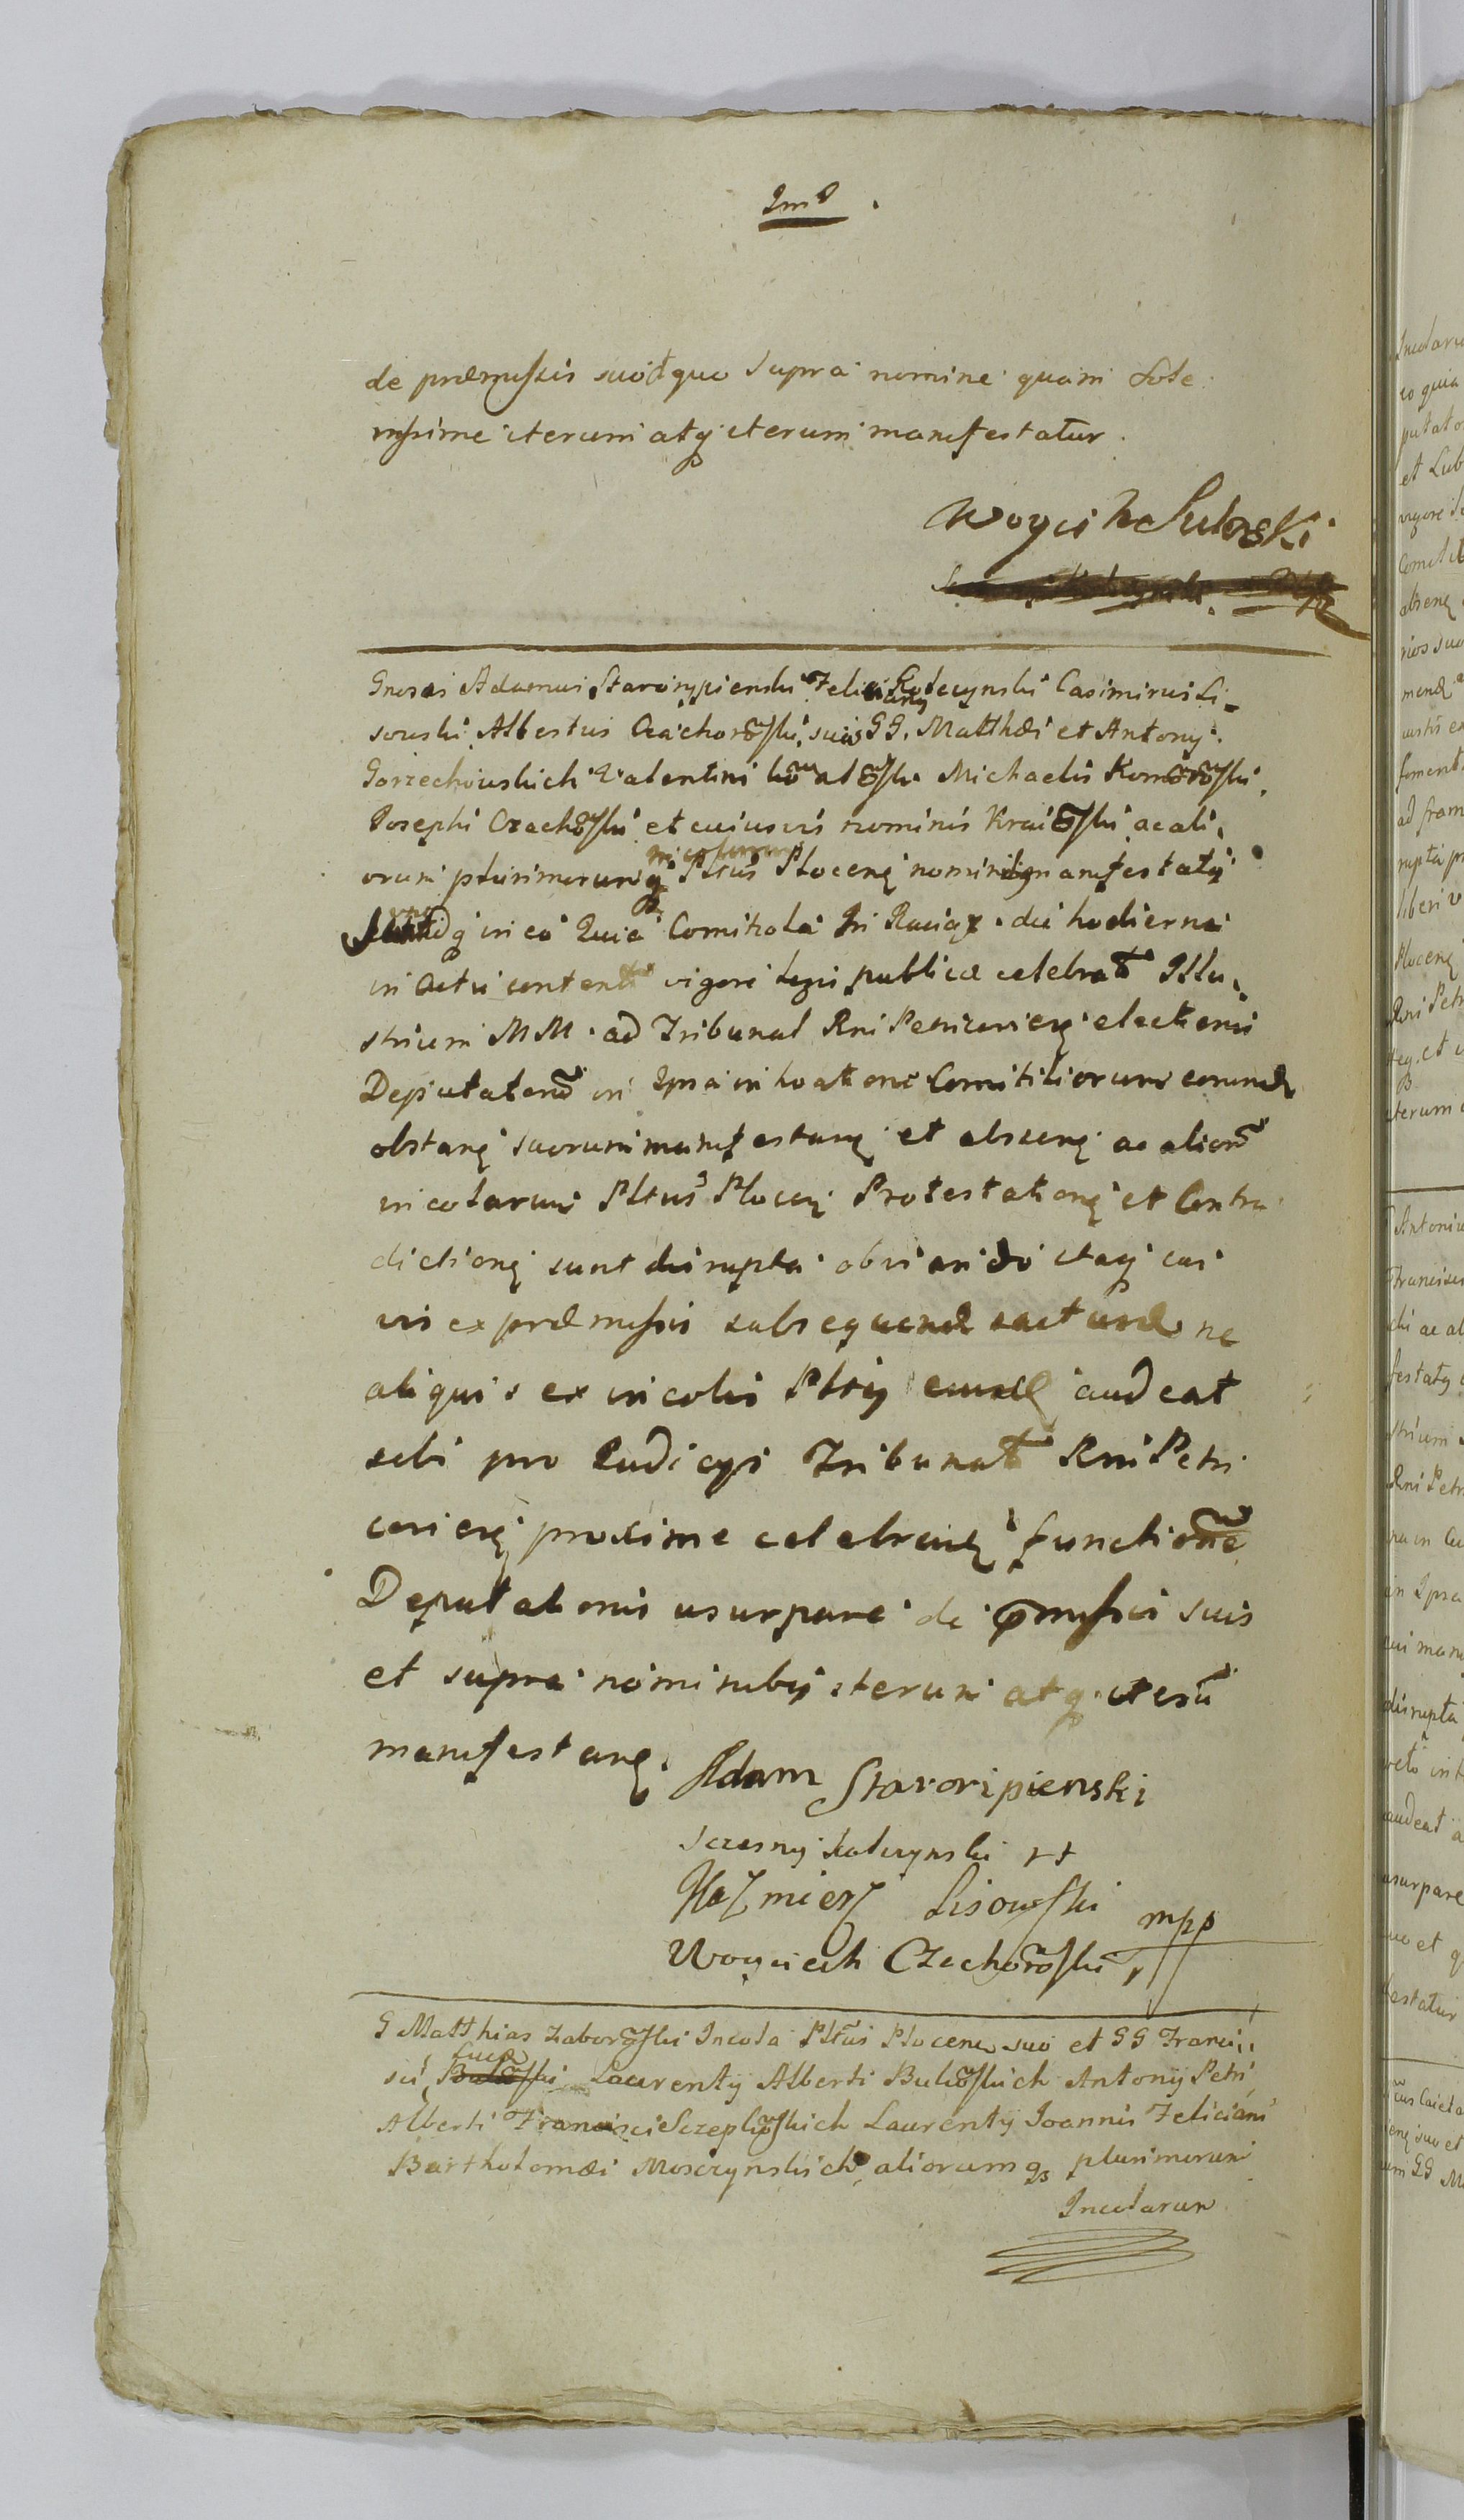 de præmissis suo et quo supra nomine quam Sole
nissime iterum atq iterum manifestatur.
Woyciech Sulorski
Gnosus Adamus Staroripienski Felicianus Kolczynski Casimirus Li-
sowski Albertus Czachorowski, suis GG. Matthæi et Antonij
Gorzechowskich Valentini Kowalowski Michaelis Komorowski
Josephi Czachowski et cuiusvis nominis Kraiewski ac ali-
incolarum
orum plurimorum q Pltus Plocen nominibus manifestatq
in eo Quia Comitiola In Raciąż die hodierna
in Actu content vigore Legis publicæ celebrat Illu-
strium MM. ad Tribunal Rni Petricovien electionis
Deputatorum in Ipsa inhoatione Comitiliorum eorund
obstan suorum manifestan et absen ac aliorum
incolarum Pltus Plocen Protestation et Contra
diction sunt disrupta obviando itaq cui
vis ex præmissis subsequend iacturæ ne
aliquis ex incolis Pltus eiusd audeat
sibi pro Iudicys Tribunal Rni Petri
covien proxime celebran functione
Deputationis usurpare de pmissis suis
et supra nominibus iterum atq iterum
manifestan.
Adam Staroripienski
Sczesny Kolczynski
Kazmierz Lisowski mpp
Woyciech Czachorowski
G Matthias Zaborowski Incola Pltus Plocen suo et GG Franci-
sci, Laurentij Alberti Bulkowskich Antonij Petri
Alberti Francisci Sczepkowskich Laurentij Joannis Feliciani
Bartholomæi Mosczynskich aliorumq plurimorum
Incolarum